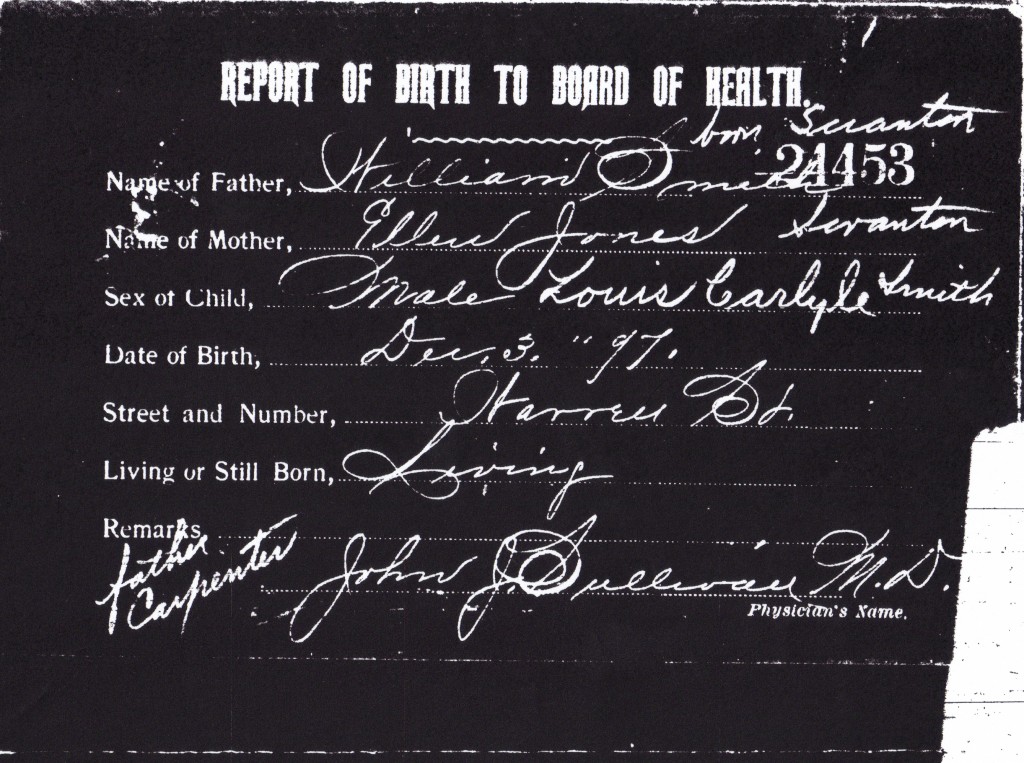 REPORT OF BIRTH TO BOARD OF HEALTH.
born Scranton
24453
Name of Father, William Smith
Name of Mother, Ellen Jones Scranton
Sex of Child, Male Louis Carlyle Smith
Date of Birth, Dec. 3. "97.
Street and Number, St.
Living or Still Born, Living
Remarks
father
Carpenter
John J. Sullivan M.D.
Physician's Name.